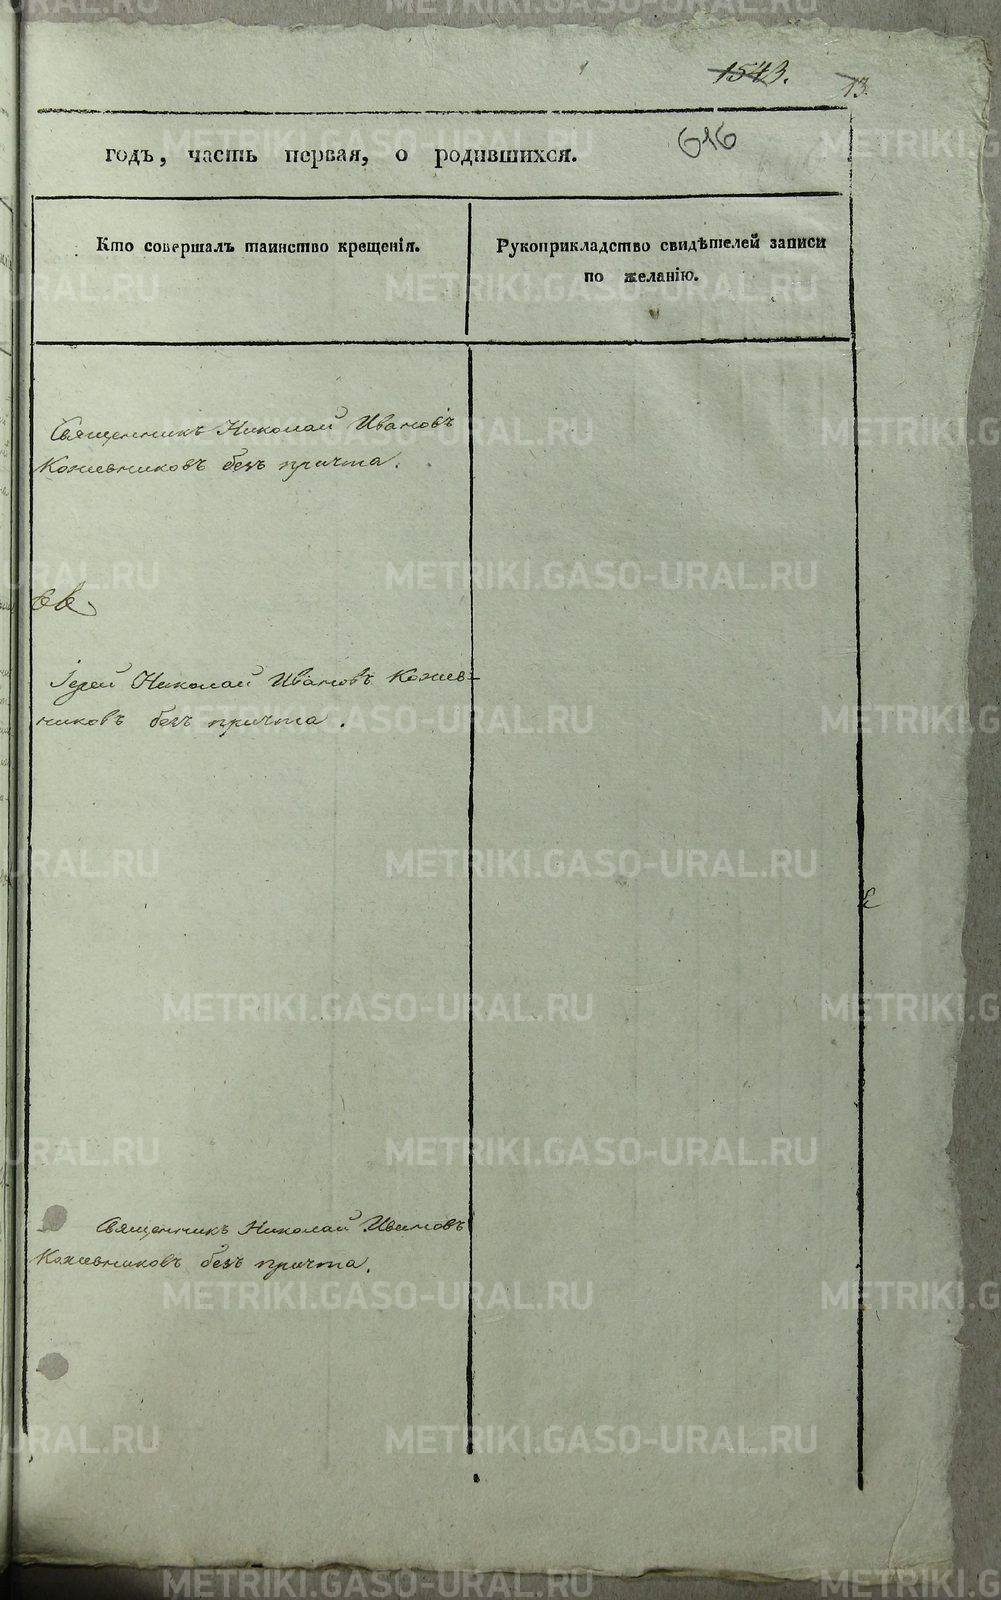 1543.
13.
616
годъ, часть первая, о родившихся.
Кто совершалъ таинство крещенія.
Рукоприкладство свидѣтелей записи
по желанію.
Священникъ Николай Ивановъ
Кожевниковъ безъ причта.
Іерей Николай Ивановъ Кожев-
никовъ безъ причта.
Священникъ Николай Ивановъ
Кожевниковъ безъ причта.
METRIKI.GASO-URAL.RU